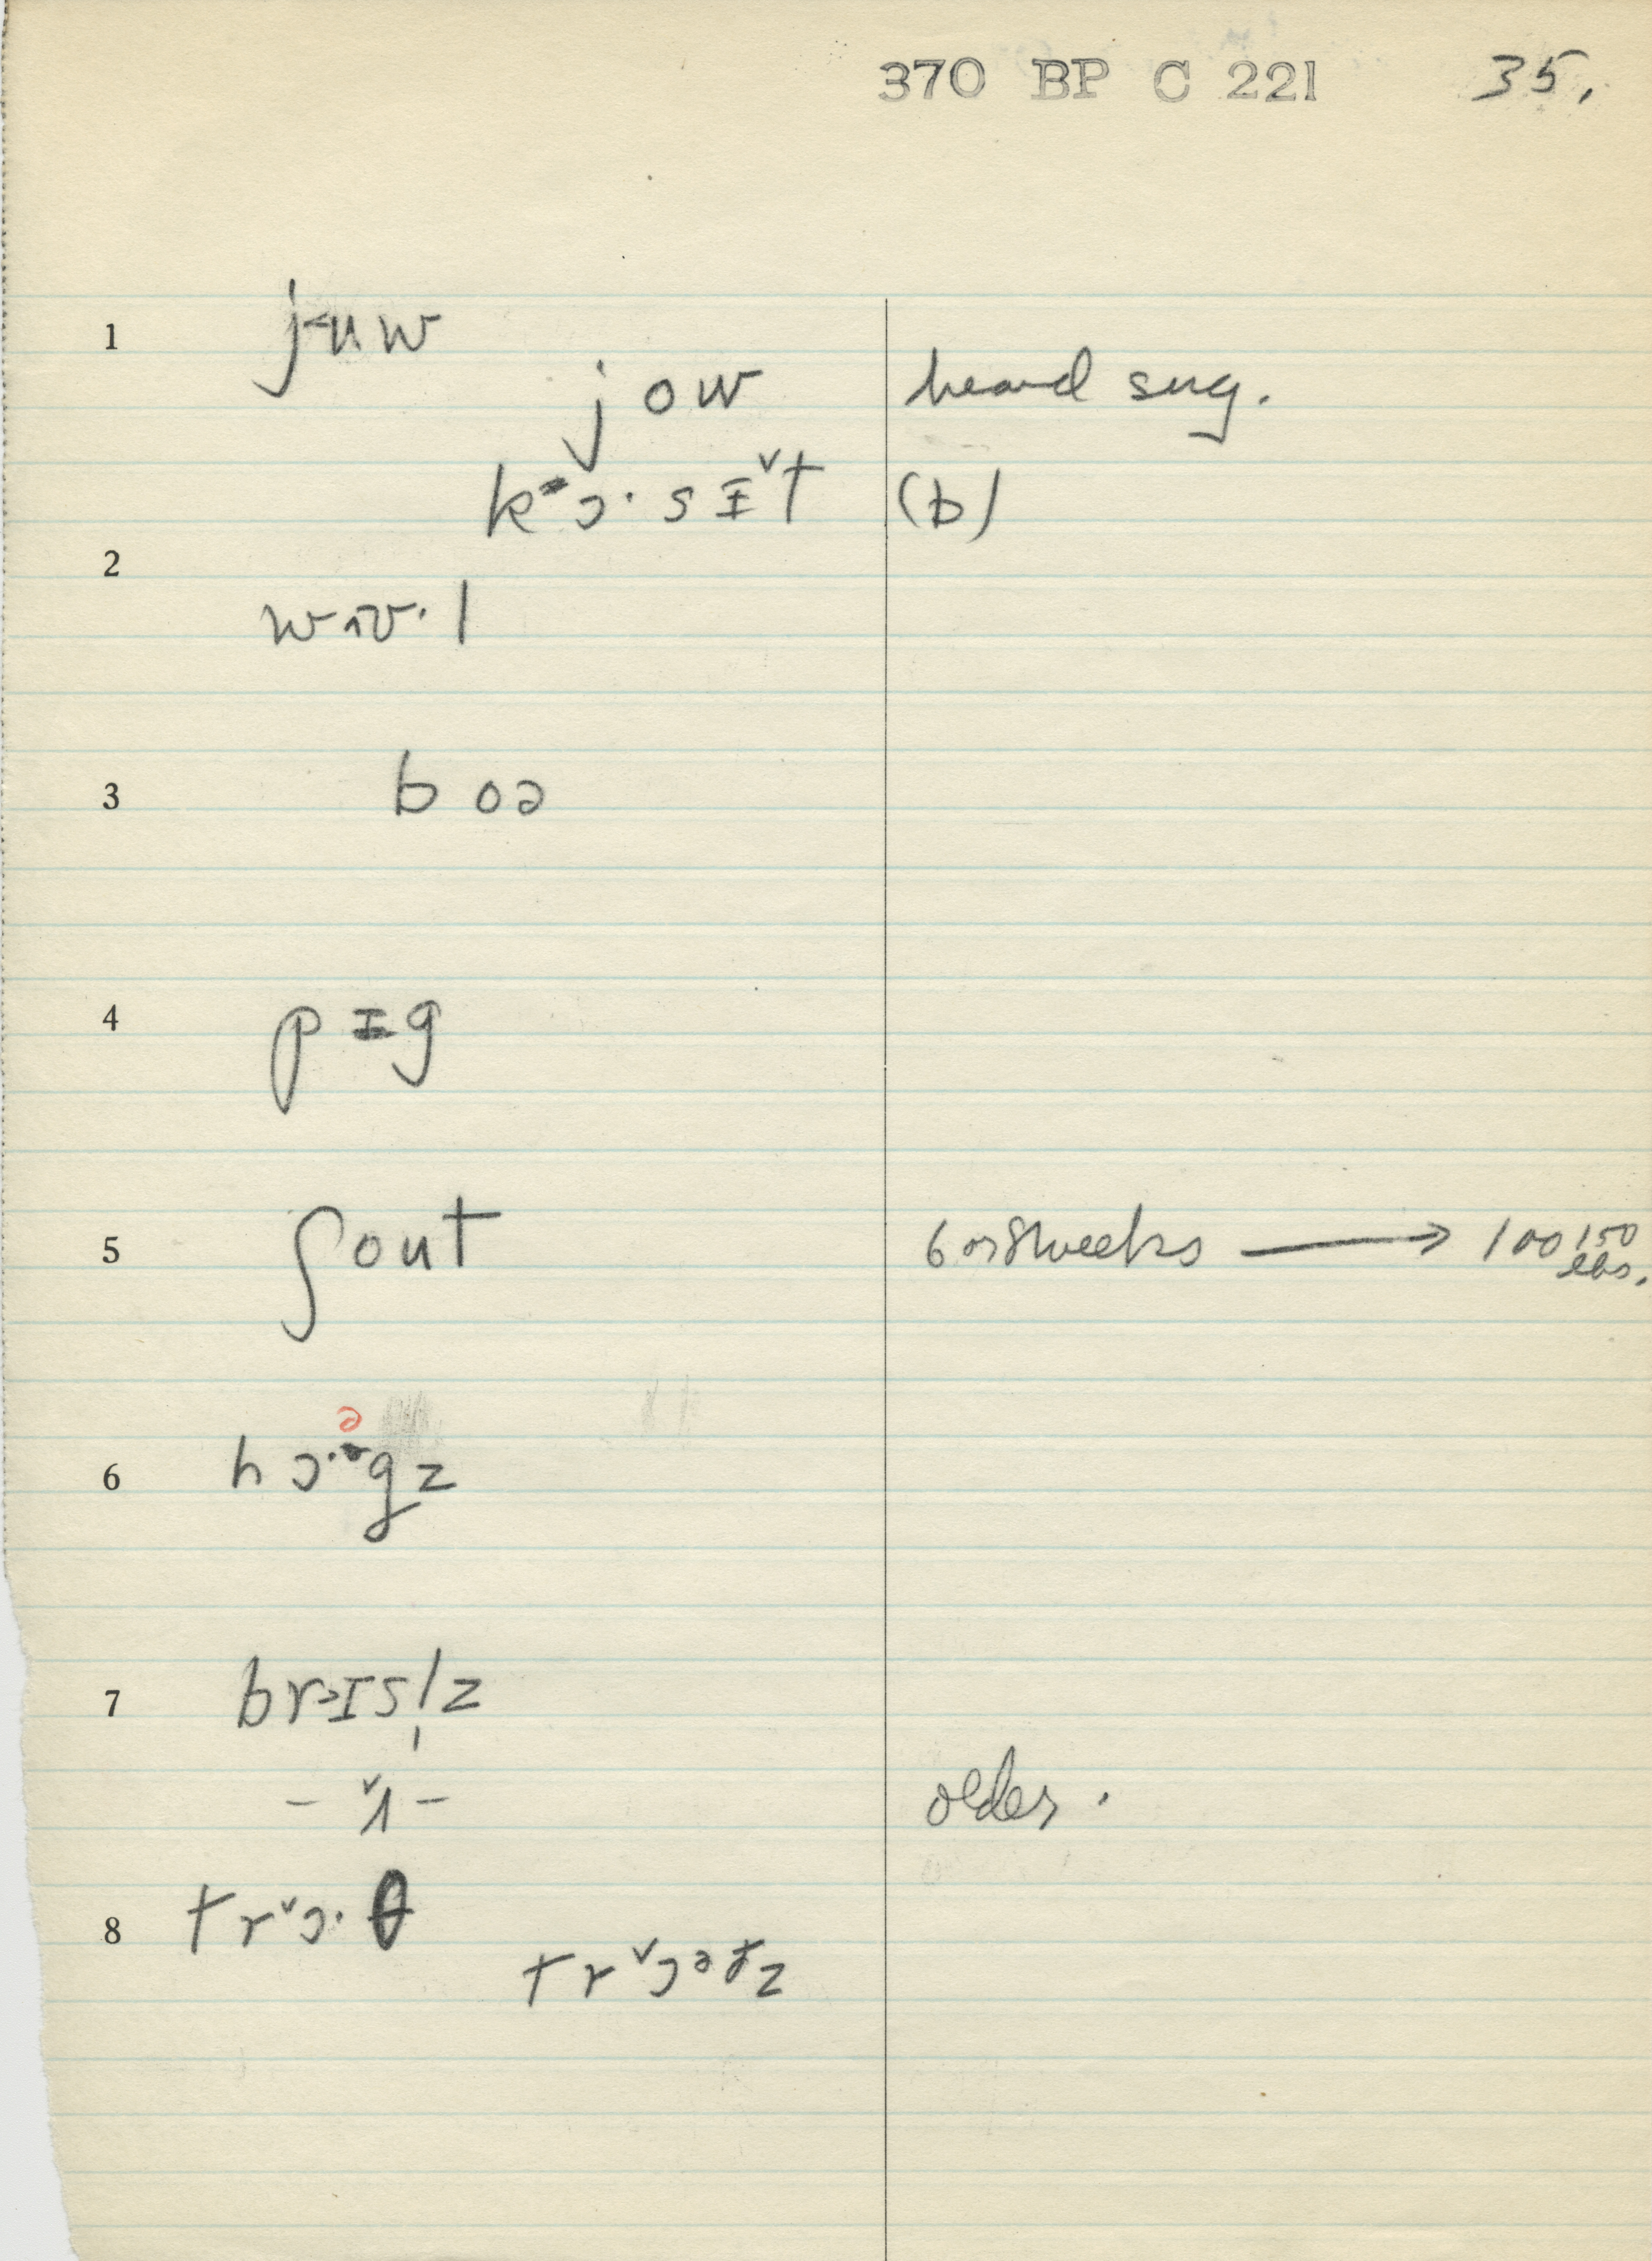 370 BP C 221 35.
1 j˂uw
jow heard sug.
k˃ɔ· s ɪ ˅t (b)
2
wɪ˄ʊ·l
3 b oə
4 p ɪ g
5 ʃout 6 or 8 weeks → 100 150 lbs.
ə
6 hɔ·gz
7 br˃ɪsl̩z
– ˅ʌ – older.
8 tr˅ɔ·θ
tr˅ɔəθz